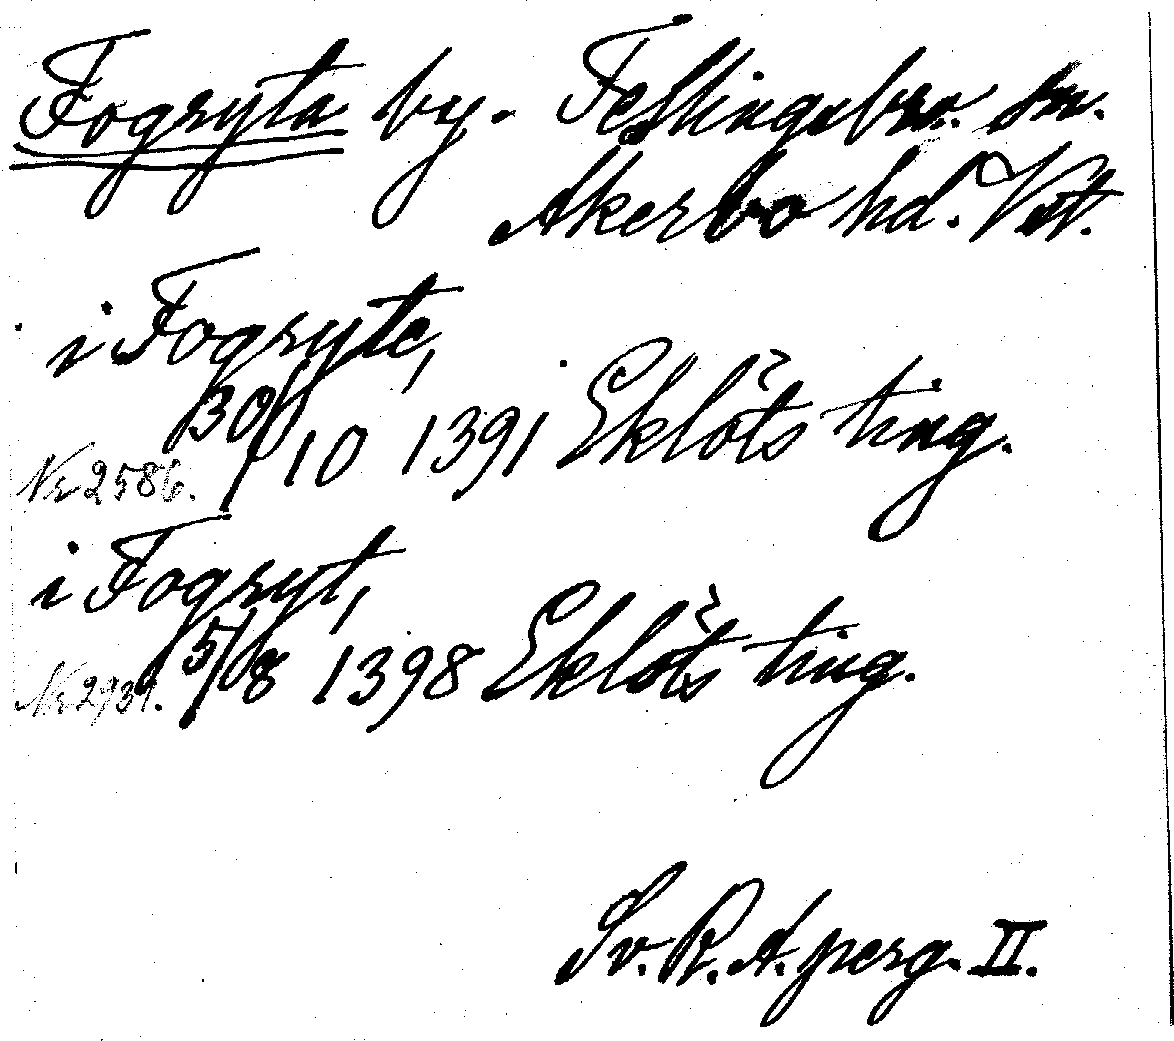 Fogryta by. Fellingsbro. sn.
Akerbo hd. Vstl.
i Fogryte,
30/10 1391 Eklöts ting.
Nr 2586.
i Fogryt,
5/8 1398 Eklöts ting.
Nr 2939.
Sv. R. A. perg. II.